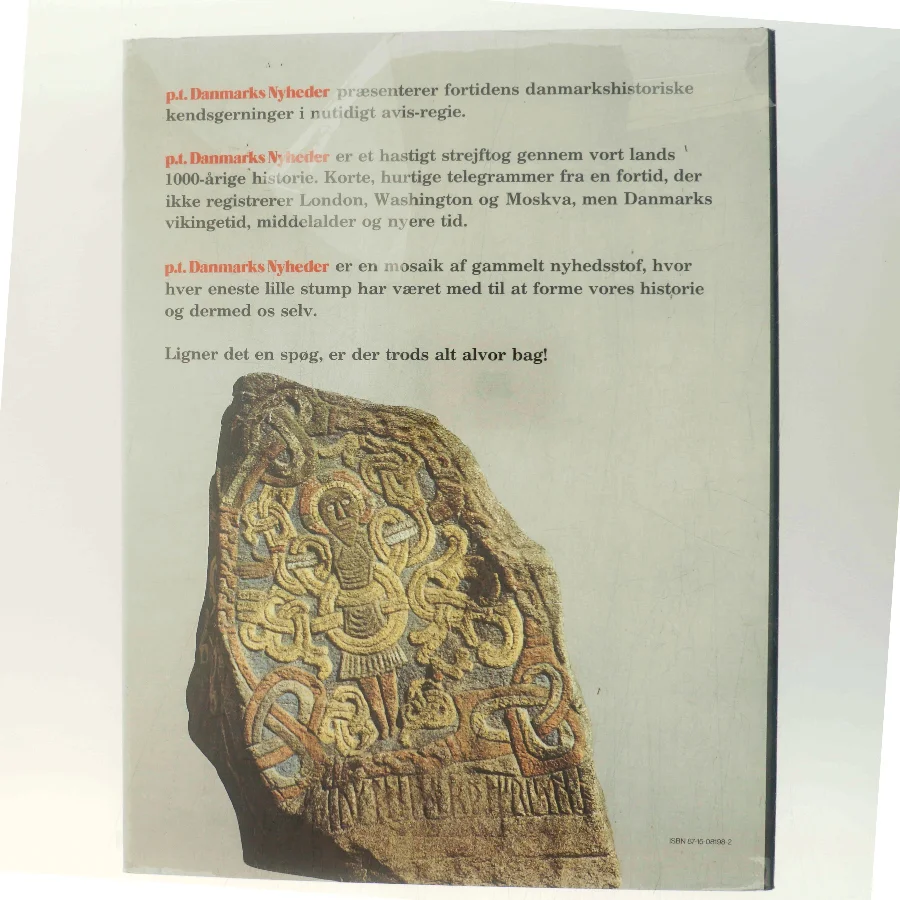 p.t. Danmarks Nyheder præsenterer fortidens danmarkshistoriske
kendsgerninger i nutidigt avis-regie.
p.t. Danmarks Nyheder er et hastigt strejftog gennem vort lands
1000-årige historie. Korte, hurtige telegrammer fra en fortid, der
ikke registrerer London, Washington og Moskva, men Danmarks
vikingetid, middelalder og nyere tid.
p.t. Danmarks Nyheder er en mosaik af gammelt nyhedsstof, hvor
hver eneste lille stump har været med til at forme vores historie
og dermed os selv.
Ligner det en spøg, er der trods alt alvor bag!
ISBN 87-15-08198-2